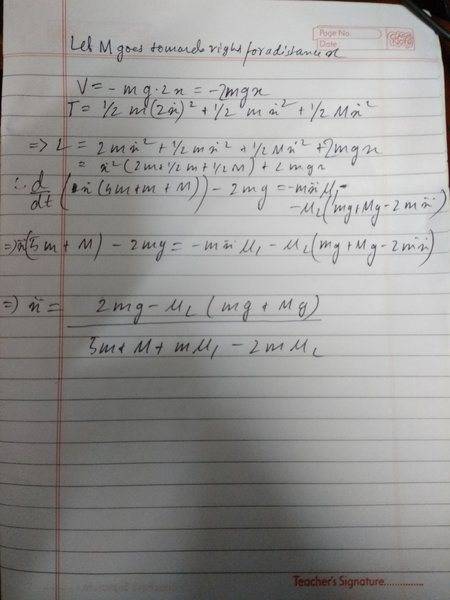 Page No.
Date
Let M goes towards right for a distance x
V = - mg·2x = -2mgx
T = 1/2 m(2ẋ)² + 1/2 mẋ² + 1/2 Mẋ²
=> L = 2mẋ² + 1/2 mẋ² + 1/2 Mẋ² + 2mgx
= ẋ²(2m+1/2m+1/2M) + 2mgx
∴ d/dt (ẋ(4m+m+M)) - 2mg = -mẍμ₁
- μ₂(mg+Mg-2mẍ)
=> ẍ(5m+M) - 2mg = -mẍμ₁ - μ₂(mg+Mg-2mẍ)
=> ẍ = 2mg - μ₂(mg+Mg)
5m+M+mμ₁ - 2mμ₂
Teacher's Signature